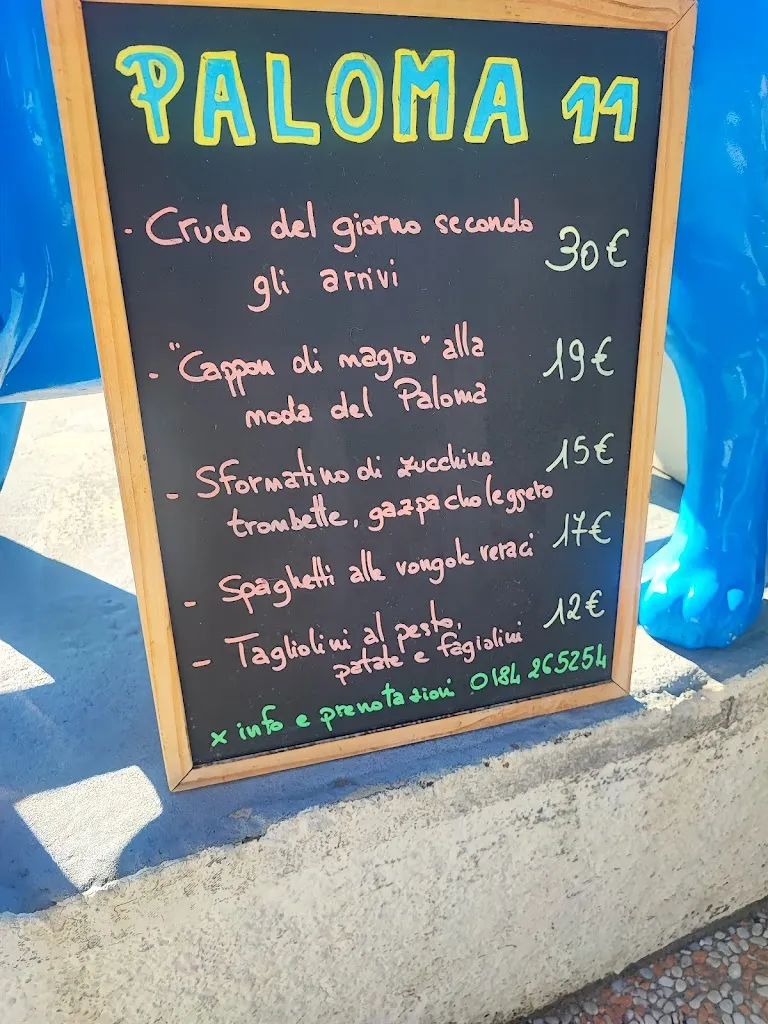 PALOMA 11
- Crudo del giorno secondo
gli arrivi 30€
- "Cappon di magro" alla
moda del Paloma 19€
- Sformatino di zucchine
trombette, gazpacho leggero 15€
- Spaghetti alle vongole veraci 17€
- Tagliolini al pesto,
patate e fagiolini 12€
x info e prenotazioni 0184 265254